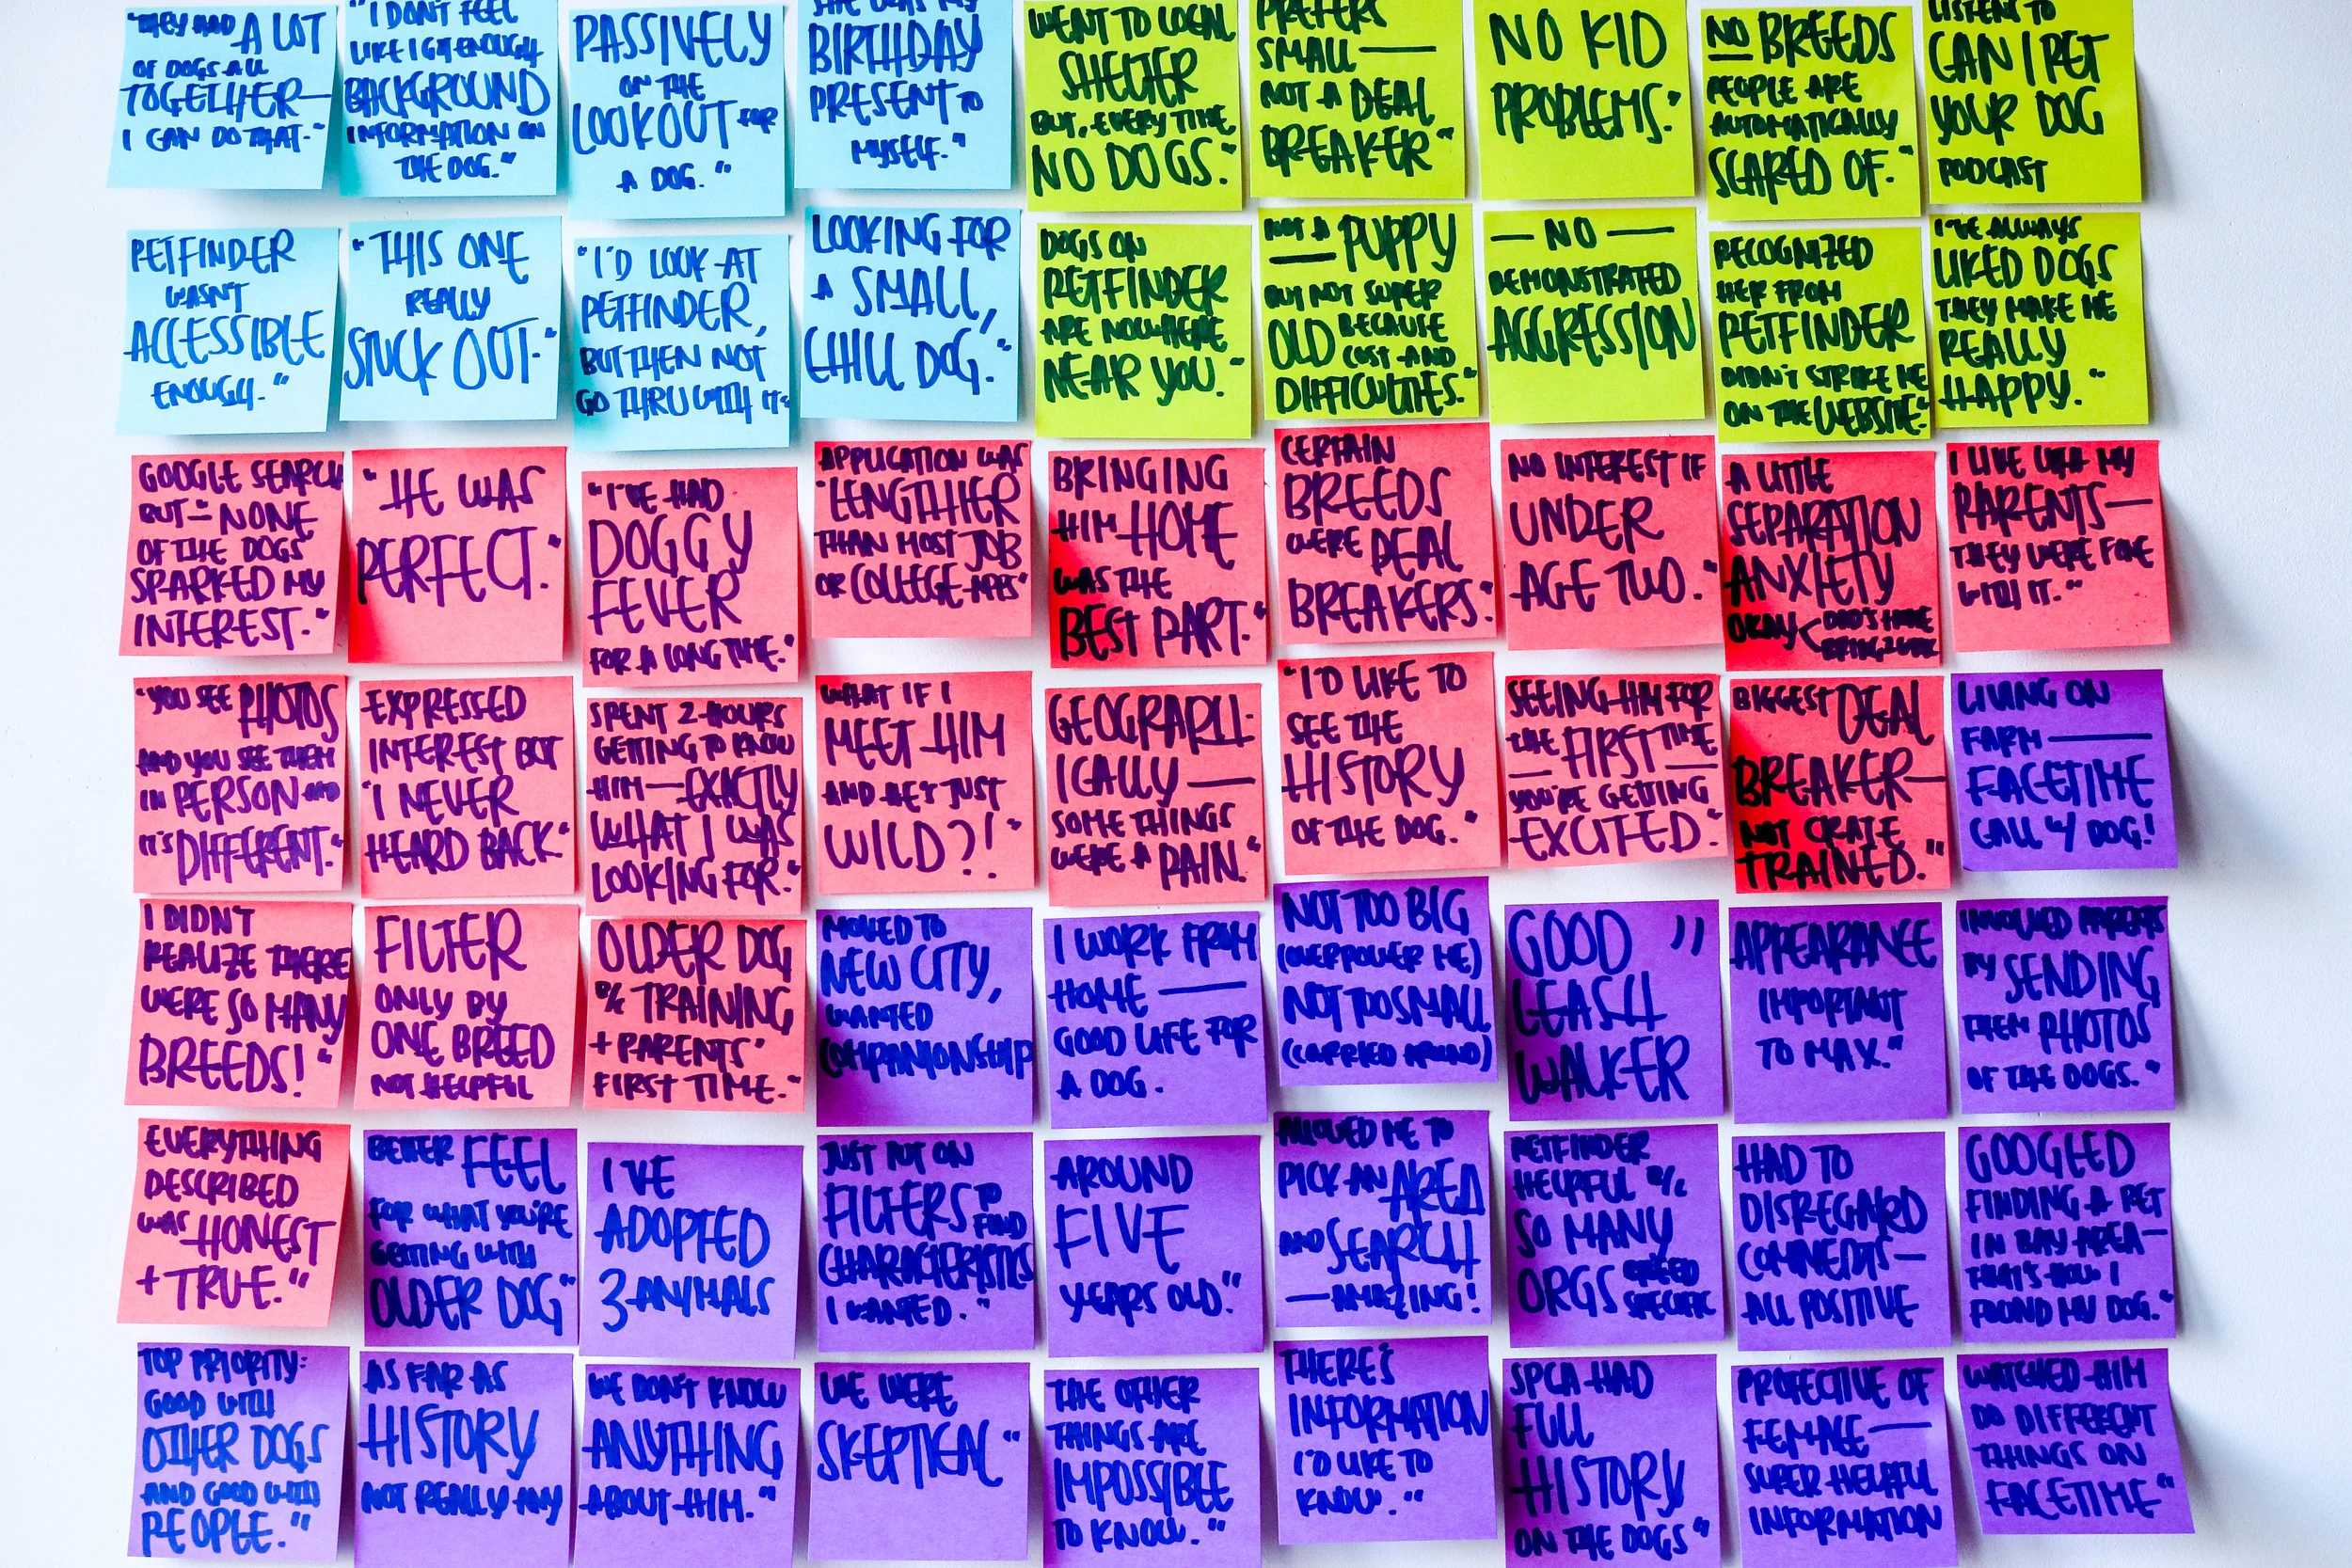 "THEY HAD A LOT
OF DOGS ALL
TOGETHER—
I CAN DO THAT."
"I DON'T FEEL
LIKE I GET ENOUGH
BACKGROUND
INFORMATION ON
THE DOG."
PASSIVELY
ON THE
LOOKOUT FOR
A DOG."
SHE WAS MY
BIRTHDAY
PRESENT TO
MYSELF."
WENT TO LOCAL
SHELTER
BUT, EVERY TIME,
NO DOGS."
PREFERS
SMALL —
NOT A DEAL
BREAKER"
NO KID
PROBLEMS."
NO BREEDS
PEOPLE ARE
AUTOMATICALLY
SCARED OF."
LISTENS TO
CAN I PET
YOUR DOG
PODCAST
PETFINDER
WASN'T
ACCESSIBLE
ENOUGH."
"THIS ONE
REALLY
STUCK OUT."
"I'D LOOK AT
PETFINDER,
BUT THEN NOT
GO THRU WITH IT"
LOOKING FOR
A SMALL,
CHILL DOG."
DOGS ON
PETFINDER
ARE NOWHERE
NEAR YOU."
NOT A PUPPY
BUT NOT SUPER
OLD BECAUSE
COST AND
DIFFICULTIES."
— NO —
DEMONSTRATED
AGGRESSION
RECOGNIZED
HER FROM
PETFINDER
DIDN'T STRIKE ME
ON THE WEBSITE."
I'VE ALWAYS
LIKED DOGS
THEY MAKE ME
REALLY
HAPPY."
GOOGLE SEARCH
BUT — "NONE
OF THE DOGS
SPARKED MY
INTEREST."
"HE WAS
PERFECT."
"I'VE HAD
DOGGY
FEVER
FOR A LONG TIME."
APPLICATION WAS
"LENGTHIER
THAN MOST JOB
OR COLLEGE APPS"
BRINGING
HIM HOME
WAS THE
BEST PART."
CERTAIN
BREEDS
WERE DEAL
BREAKERS."
NO INTEREST IF
UNDER
AGE TWO."
A LITTLE
SEPARATION
ANXIETY
OKAY <
I LIVE WITH MY
PARENTS—
THEY WERE FINE
WITH IT."
"YOU SEE PHOTOS
AND YOU SEE THEM
IN PERSON AND
IT'S DIFFERENT."
EXPRESSED
INTEREST BUT
"I NEVER
HEARD BACK"
SPENT 2-HOURS
GETTING TO KNOW
HIM — EXACTLY
WHAT I WAS
LOOKING FOR."
WHAT IF I
MEET HIM
AND HE'S JUST
WILD?!"
GEOGRAPH-
ICALLY —
SOME THINGS
WERE A PAIN."
"I'D LIKE TO
SEE THE
HISTORY
OF THE DOG."
SEEING HIM FOR
THE FIRST TIME
YOU'RE GETTING
EXCITED."
BIGGEST DEAL
BREAKER—
NOT CRATE
TRAINED."
LIVING ON
FARM —
FACETIME
CALL W/ DOG!
I DIDN'T
REALIZE THERE
WERE SO MANY
BREEDS!"
FILTER
ONLY BY
ONE BREED
NOT HELPFUL
OLDER DOG
B/C TRAINING
+ PARENTS'
FIRST TIME."
MOVED TO
NEW CITY,
WANTED
COMPANIONSHIP
I WORK FROM
HOME —
GOOD LIFE FOR
A DOG.
NOT TOO BIG
(OVERPOWER ME)
NOT TOO SMALL
(CARRIED AROUND)
GOOD "
LEASH
WALKER
APPEARANCE
IMPORTANT
TO MAX."
INVOLVED PARENTS
BY SENDING
THEM PHOTOS
OF THE DOGS."
EVERYTHING
DESCRIBED
WAS HONEST
+ TRUE."
BETTER FEEL
FOR WHAT YOU'RE
GETTING WITH
OLDER DOG"
I'VE
ADOPTED
3 ANIMALS
JUST PUT ON
FILTERS TO
FIND
CHARACTERISTICS
I WANTED."
AROUND
FIVE
YEARS OLD."
ALLOWED ME TO
PICK AN AREA
AND SEARCH
— AMAZING!
PETFINDER
HELPFUL B/C
SO MANY
ORGS BREED
SPECIFIC
HAD TO
DISREGARD
COMMENTS—
ALL POSITIVE
GOOGLED
FINDING A PET
IN BAY AREA—
THAT'S HOW I
FOUND MY DOG."
TOP PRIORITY:
GOOD WITH
OTHER DOGS
AND GOOD WITH
PEOPLE."
AS FAR AS
HISTORY
NOT REALLY ANY
WE DON'T KNOW
ANYTHING
ABOUT HIM."
WE WERE
SKEPTICAL"
THE OTHER
THINGS ARE
IMPOSSIBLE
TO KNOW."
THERE'S
INFORMATION
I'D LIKE TO
KNOW."
SPCA HAD
FULL
HISTORY
ON THE DOGS"
PROTECTIVE OF
FEMALE —
SUPER HELPFUL
INFORMATION
WATCHED HIM
DO DIFFERENT
THINGS ON
FACETIME"